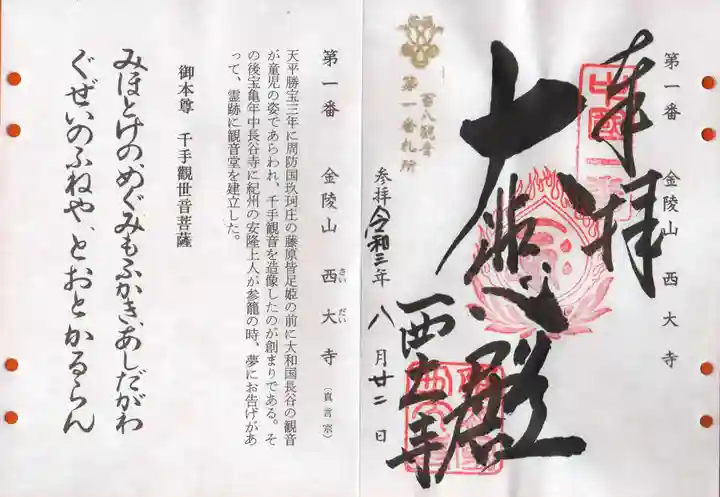 第一番 金陵山 西大寺
奉拝
中國一番
大悲殿
西大寺
百八観音
第一番札所
参拝令和三年八月廿二日
第一番 金陵山 西大寺(真言宗)
さい だい
天平勝宝三年に周防国玖珂庄の藤原皆足姫の前に大和国長谷の観音
が童児の姿であらわれ、千手観音を造像したのが創まりである。そ
の後宝亀年中長谷寺に紀州の安隆上人が参籠の時、夢にお告げがあ
って、霊跡に観音堂を建立した。
御本尊 千手觀世音菩薩
みほとけの、めぐみもふかき、あしだがわ
ぐぜいのふねや、とおとかるらん